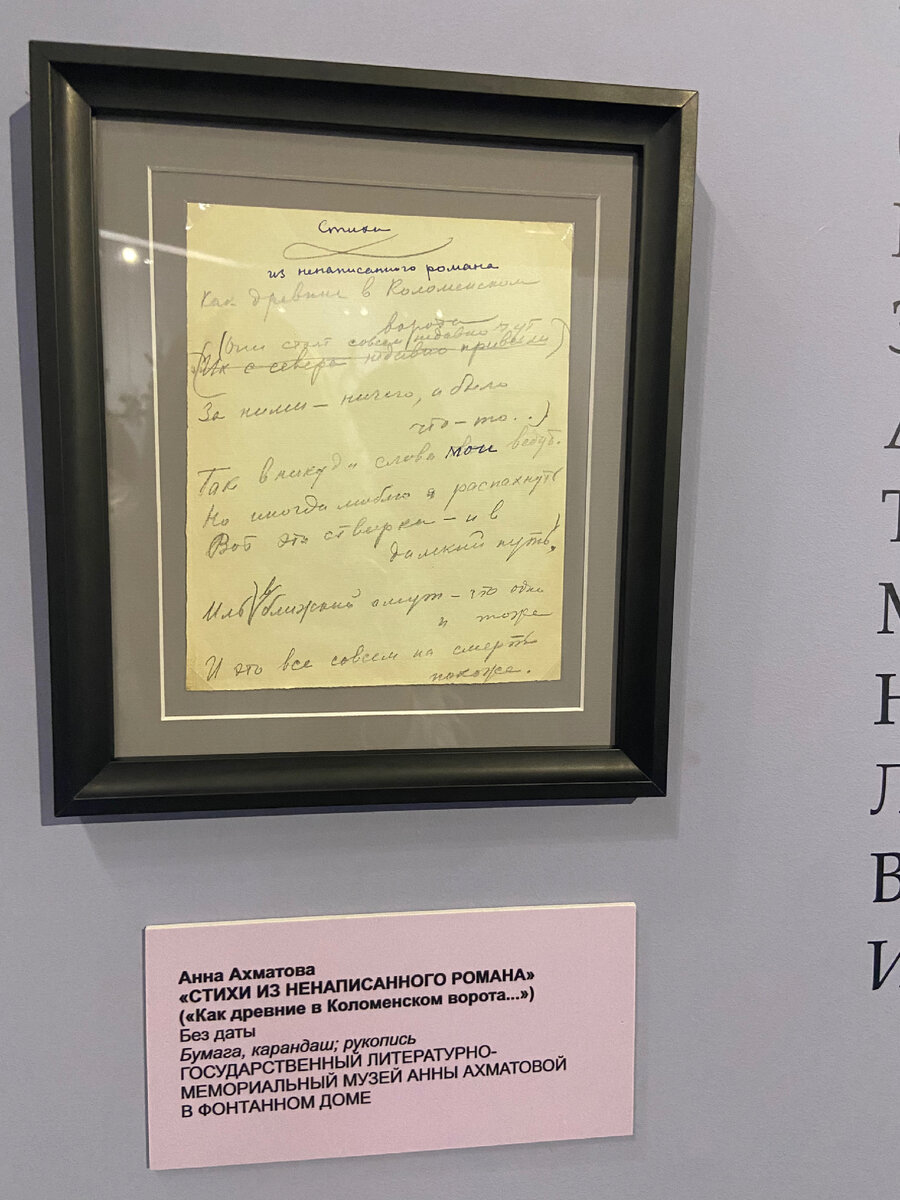 Стихи
из ненаписанного романа
Как древние в Коломенском
ворота
(Они стоят совсем недавно тут
(Их с севера недавно привезли)
За ними – ничего, а было
что-то..)
Так в никуда слова мои ведут.
Но иногда люблю я распахнуть
Вот эти створки – и в
далекий путь,
Иль в ближний омут – это одно
и тоже
И это все совсем на смерть
похоже.
Анна Ахматова
«СТИХИ ИЗ НЕНАПИСАННОГО РОМАНА»
(«Как древние в Коломенском ворота...»)
Без даты
Бумага, карандаш; рукопись
ГОСУДАРСТВЕННЫЙ ЛИТЕРАТУРНО-
МЕМОРИАЛЬНЫЙ МУЗЕЙ АННЫ АХМАТОВОЙ
В ФОНТАННОМ ДОМЕ